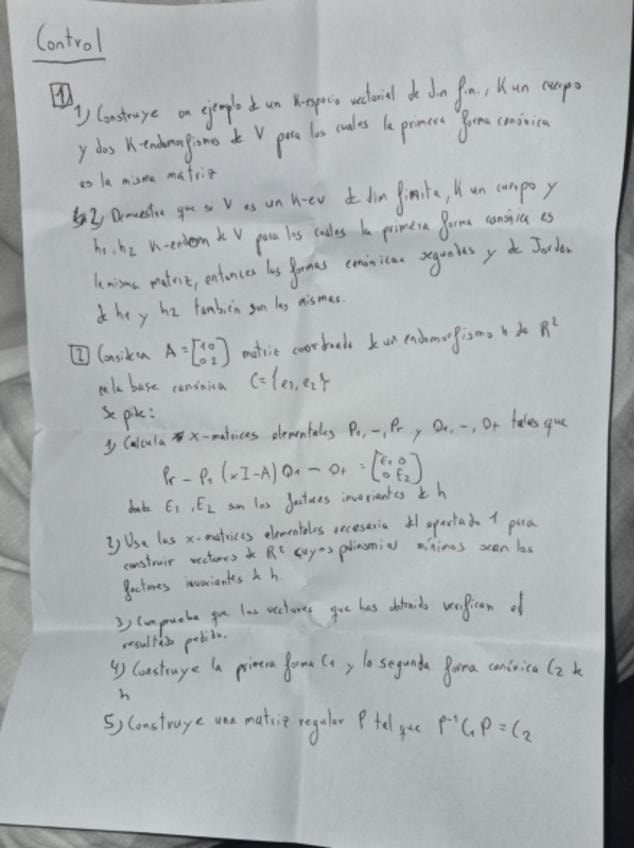 Control
1 1) Construye un ejemplo d un K-espacio vectorial de dim fin., K un cuerpo
y dos K-endomorfismos de V para los cuales la primera forma canónica
es la misma matriz
2) Demuestra que si V es un K-ev d dim finita, K un cuerpo y
h1, h2 K-endom de V para los cuales la primera forma canónica es
la misma matriz, entonces las formas canónicas segundas y de Jordan
d h1 y h2 también son las mismas.
2 Considera A = [1 0 0 2] matriz coordenada d un endomorfismo h de R²
en la base canónica C = {e1, e2}
Se pide:
1) Calcula x-matrices elementales P1, -, Pr y Q1, -, Qt tales que
Pr - P1 (xI-A) Q1 - Qt = [E1 0 0 E2]
donde E1, E2 son los factores invariantes d h
2) Usa las x-matrices elementales necesaria del apartado 1 para
construir vectores de R² cuyos polinomios mínimos sean los
factores invariantes d h.
3) Comprueba que los vectores que has obtenido verifican el
resultado pedido.
4) Construye la primera forma C1 y la segunda forma canónica C2 d
h
5) Construye una matriz regular P tal que P⁻¹ C1 P = C2